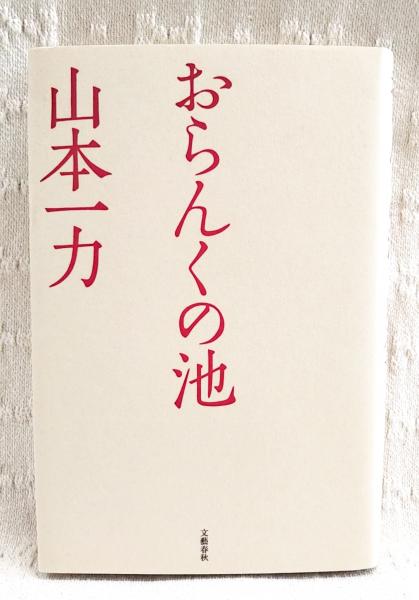 おらんくの池
山本一力
文藝春秋